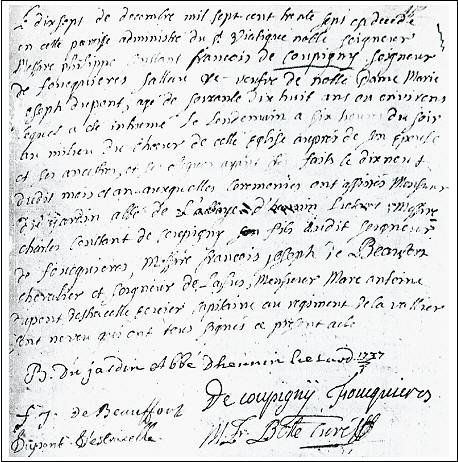 Le dix sept de decembre mil sept cent trente sept est decedé
en cette paroisse administré du St Viatique noble seigneur
Messire philippe Constant francois de coupigny seigneur
de foucquieres Sallau &c veufve de noble Dame Marie
joseph dupont, age de soixante dix huit ans ou environs
lequel a ete inhumé le lendemain a six heures du soir
au milieu du choeur de cette Eglise aupres de son Epouse
et ses ancetres, et ses obseques ayant ete faits le dixneuf
dudit mois et an auxquelles ceremonies ont assistes Monsieur
Du jardin abbé de L'abbaye d'hennin Lietard, Messire
charles Constant de coupigny fils dudit seigneur
de foucquieres, Messire francois joseph de Beaufort
chevalier et seigneur de Monsieur Marc antoine
dupont ecuier capitaine au regiment de la valliere
son neveu qui ont tous signes ce present acte
B. Du jardin Abbé Dhennin Lietard 1737
De coupigny foucquieres
f. j. de Beauffort
Dupont